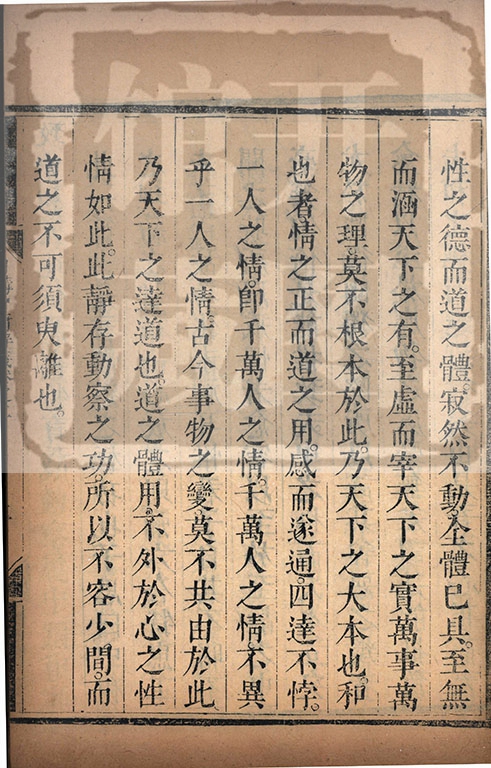 性之德而道之體寂然不動全體已具至無
而涵天下之有至虛而宰天下之實萬事萬
物之理莫不根本於此乃天下之大本也和
也者情之正而道之用感而遂通四達不悖
一人之情卽千萬人之情千萬人之情不異
乎一人之情古今事物之變莫不共由於此
乃天下之達道也道之體用不外於心之性
情如此此靜存動察之功所以不容少間而
道之不可須臾離也